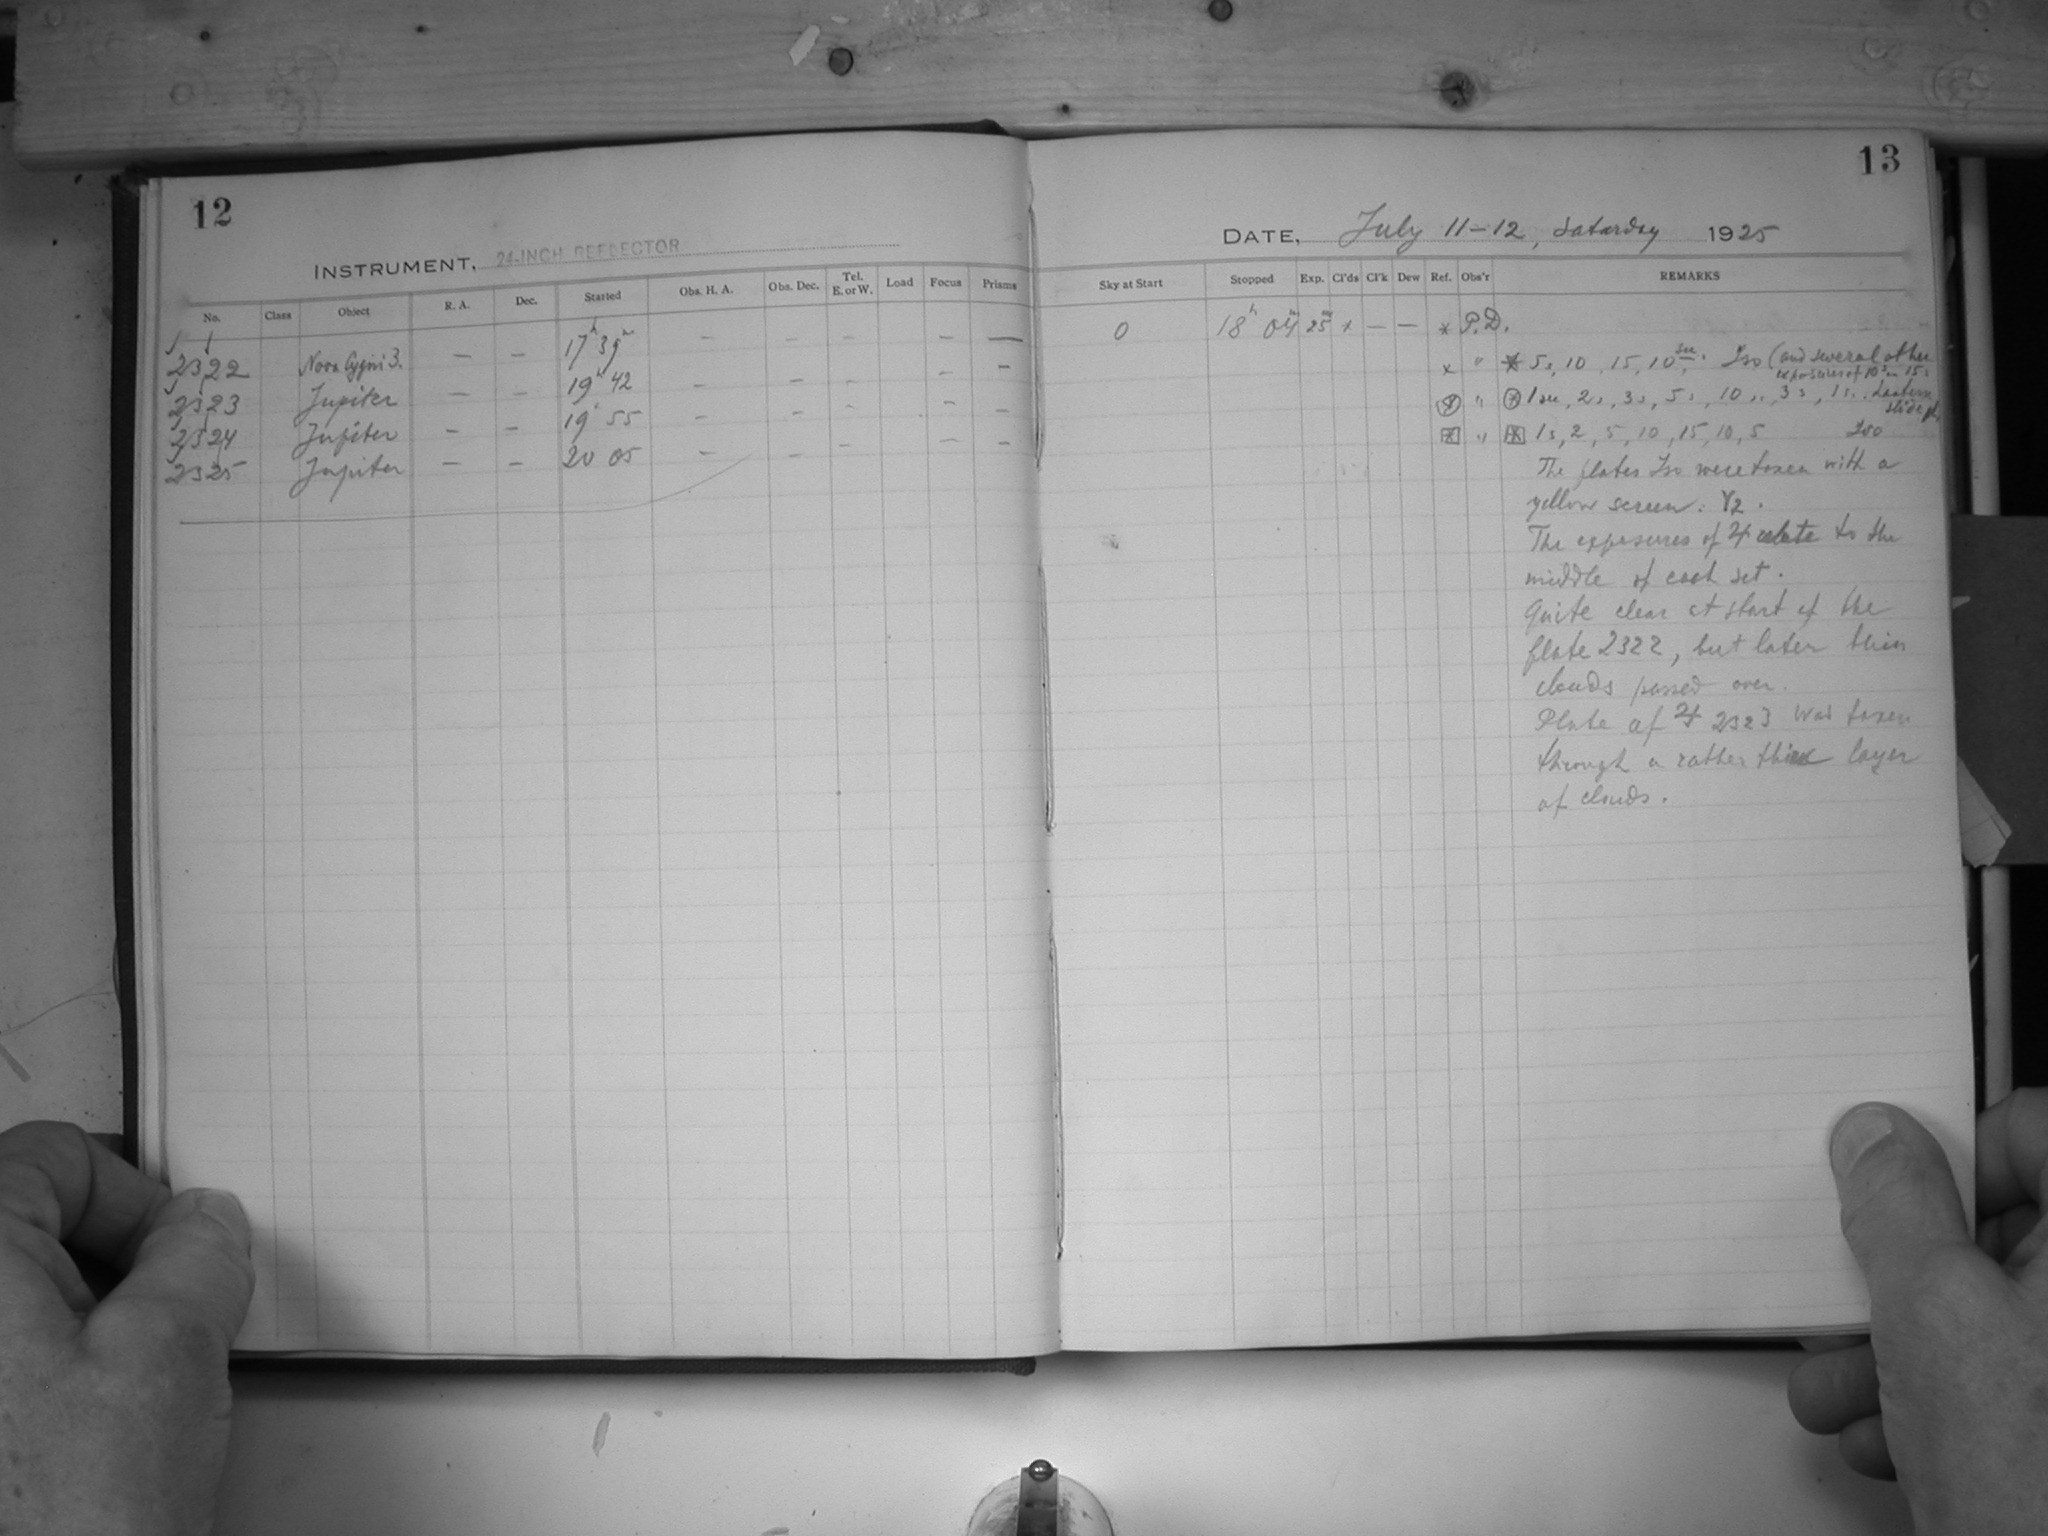 12
INSTRUMENT, 24-INCH REFLECTOR
No. Class Object R. A. Dec. Started Obs. H. A. Obs. Dec. Tel. E. or W. Load Focus Prisms
2322 Nova Cygni 3. — — 17h 39m — — — — —
2323 Jupiter — — 19h 42 — — — — —
2324 Jupiter — — 19 55 — — — — —
2325 Jupiter — — 20 05 — — — — —
13
DATE, July 11-12, Saturday 1925
Sky at Start Stopped Exp. Cl'ds Cl'k Dew Ref. Obs'r REMARKS
0 18h 04m 25m x — — * P.D.
x " * 5s, 10, 15, 10 sec. Iso (and several other
exposures of 10s 15s
* " * 1 sec, 2s, 3s, 5s, 10s, 3s, 1s. Lantern
slide pl.
* " * 1s, 2, 5, 10, 15, 10, 5 Iso
The plates Iso were taken with a
yellow screen: Y2.
The exposures of ♃ relate to the
middle of each set.
Quite clear at start of the
plate 2322, but later thin
clouds passed over.
Plate of ♃ 2323 was taken
through a rather thick layer
of clouds.